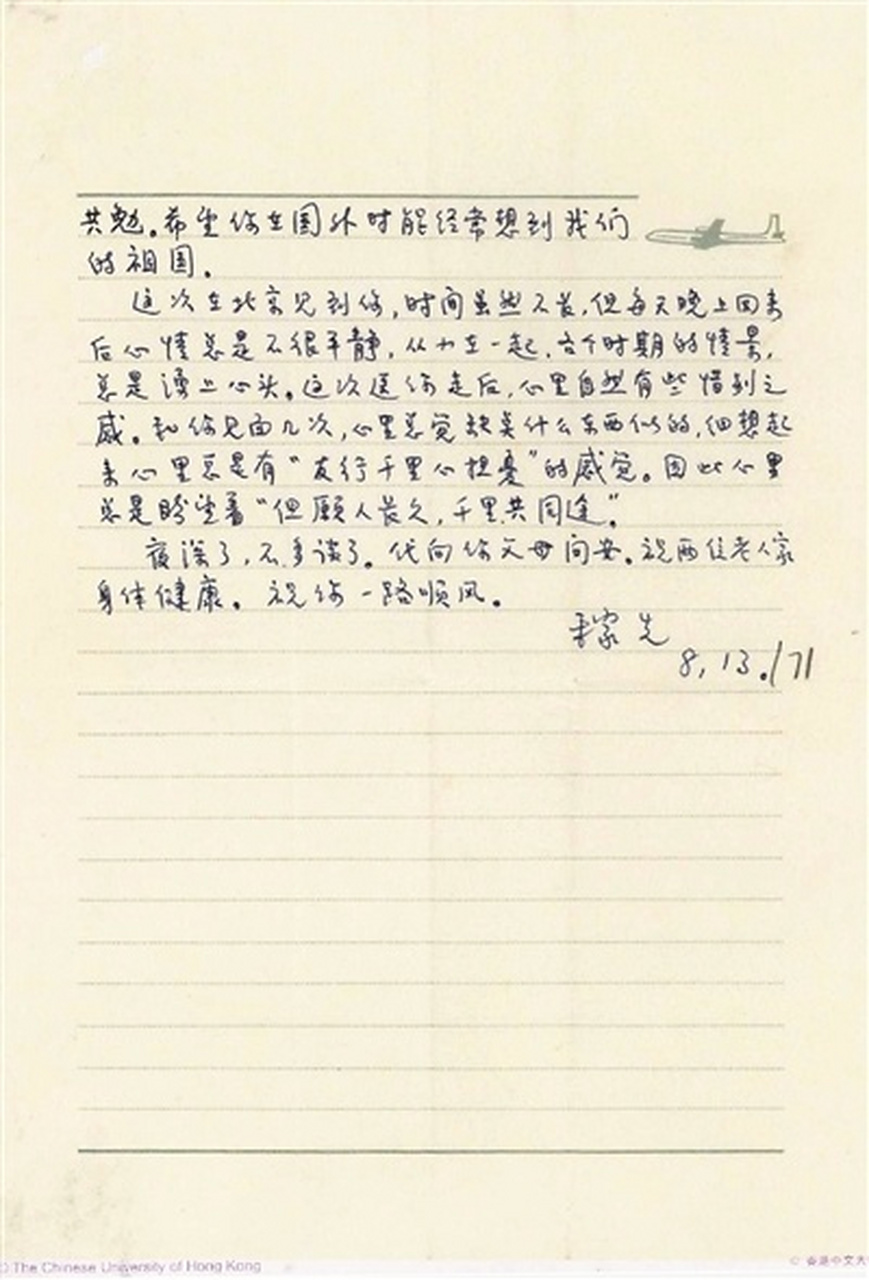 共勉。希望你在国外时能经常想到我们
的祖国。
这次在北京见到你,时间虽然不长,但每天晚上回来
后心情总是不很平静,从小在一起,各个时期的情景,
总是涌上心头。这次送你走后,心里自然有些惜别之
感。和你见面几次,心里总觉缺莫什么东西似的,细想起
来心里总是有“友行千里心担忧”的感觉。因此心里
总是盼望着“但愿人长久,千里共同途”。
夜深了,不多谈了。代向你父母问安。祝两位老人家
身体健康。祝你一路顺风。
稼先
8,13./71
The Chinese University of Hong Kong
© 香港中文大